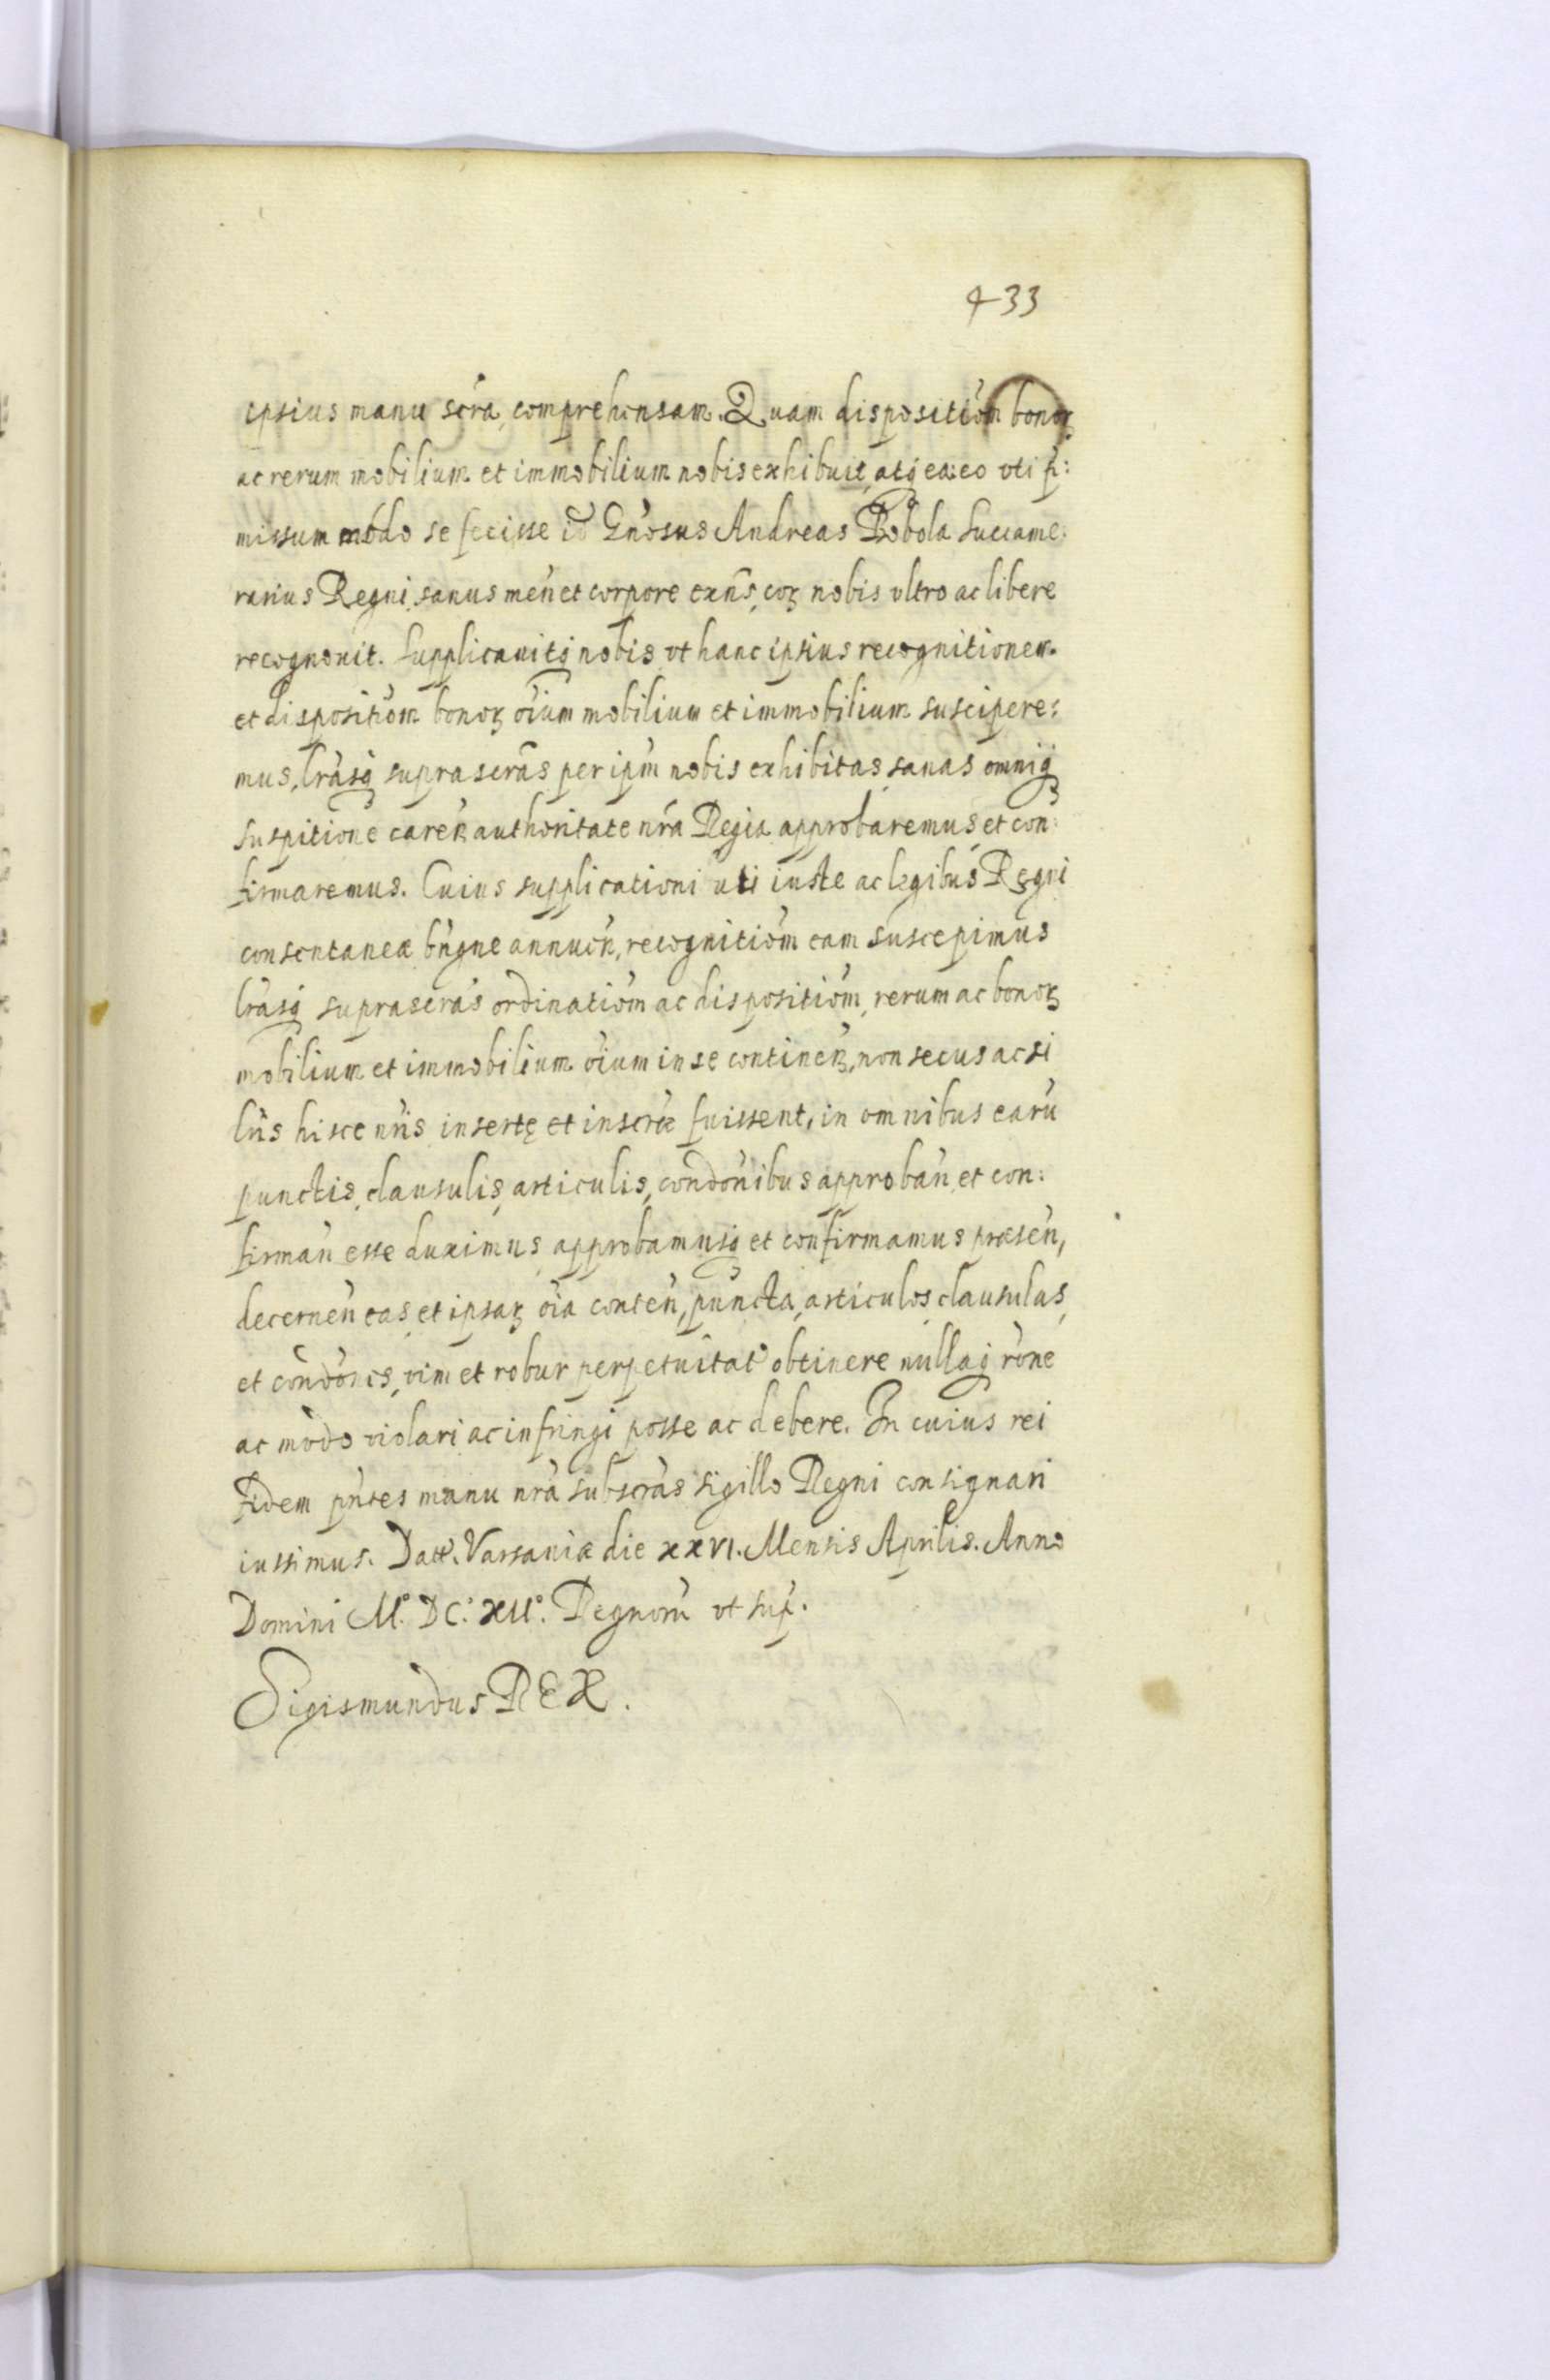 433
ipsius manu scra, comprehensam. Quam disposition̄ bonoꝝ
ac rerum mobilium et immobilium nobis exhibuit, atq̄ ea eo vti p̄:
missum modo se fecisse id Gn̄osus Andreas Bobola Succame:
rarius Regni, sanus men̄ et corpore exn̄s, coꝝ nobis vltro ac libere
recognouit. Supplicauitq̄ nobis vt hanc ipsius recognitionem
et disposition̄ bonoꝝ oīum mobilium et immobilium suscipere:
mus, lrāsq̄ suprascrās per ip̄m nobis exhibitas, sanas omniq̄
suspitione caren̄ authoritate nrā Regia approbaremus, et con:
firmaremus. Cuius supplicationi uti iuste ac legibus Regni
consentaneæ bn̄gne annuen̄, recognitiōm eam suscepimus
lrāsq̄ suprascrās ordinatiōm ac dispositiōm, rerum ac bonoꝝ
mobilium et immobilium oīum in se continen̄, non secus ac si
lrīs hisce nrīs insertę et inscrāe fuissent, in omnibus earū
punctis, clausulis, articulis, condōnibus approban̄ et con:
firman̄ esse duximus, approbamusq̄ et confirmamus præsen̄,
decernen̄ eas, et ipsaꝝ oīa conten̄, puncta, articulos, clausulas,
et condōnes, vim et robur perpetuitat obtinere nullaq̄ rōne
ac modo violari ac infringi posse ac debere. In cuius rei
fidem pn̄tes manu nrā subscrās sigillo Regni consignari
iussimus. Datt. Varsauiæ die XXVI. Mensis Aprilis. Anno
Domini M.° DC.° XII°. Regnorū vt sup̄.
Sigismundus REX.